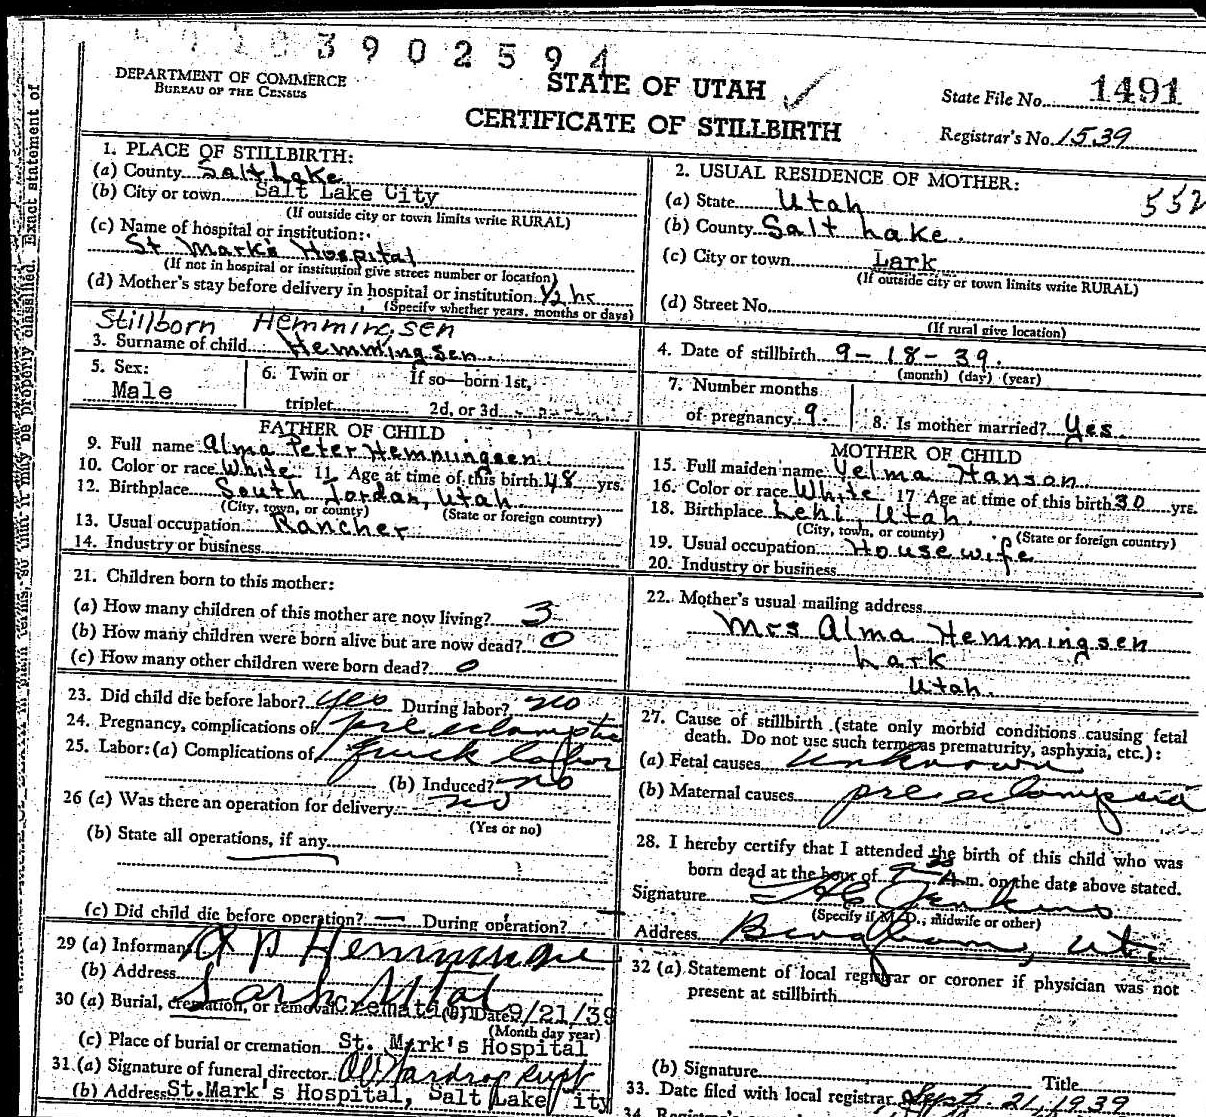 3902594
DEPARTMENT OF COMMERCE
BUREAU OF THE CENSUS
STATE OF UTAH
CERTIFICATE OF STILLBIRTH
State File No. 1491
Registrar's No. 1539
1. PLACE OF STILLBIRTH:
(a) County Salt Lake
(b) City or town Salt Lake City
(If outside city or town limits write RURAL)
(c) Name of hospital or institution:
St Mark's Hospital
(If not in hospital or institution give street number or location)
(d) Mother's stay before delivery in hospital or institution 1/2 hr
(Specify whether years, months or days)
2. USUAL RESIDENCE OF MOTHER:
552
(a) State Utah
(b) County Salt Lake
(c) City or town Lark
(If outside city or town limits write RURAL)
(d) Street No.
(If rural give location)
Stillborn Hemmingsen
3. Surname of child Hemmingsen
4. Date of stillbirth 9-18-39.
(month) (day) (year)
5. Sex:
Male
6. Twin or If so—born 1st,
triplet 2d, or 3d
7. Number months
of pregnancy 9.
8. Is mother married? Yes
FATHER OF CHILD
9. Full name Alma Peter Hemmingsen
10. Color or race White 11. Age at time of this birth 48 yrs.
12. Birthplace South Jordan, Utah
(City, town, or county) (State or foreign country)
13. Usual occupation Rancher
14. Industry or business
MOTHER OF CHILD
15. Full maiden name Velma Hanson
16. Color or race White 17 Age at time of this birth 30 yrs.
18. Birthplace Lehi, Utah.
(City, town, or county) (State or foreign country)
19. Usual occupation Housewife
20. Industry or business
21. Children born to this mother:
(a) How many children of this mother are now living? 3
(b) How many children were born alive but are now dead? 0
(c) How many other children were born dead? 0
22. Mother's usual mailing address
Mrs Alma Hemmingsen
Lark
Utah.
23. Did child die before labor? yes During labor? no
24. Pregnancy, complications of pre eclamptic
25. Labor: (a) Complications of quick labor
(b) Induced? no
26 (a) Was there an operation for delivery no
(Yes or no)
(b) State all operations, if any
(c) Did child die before operation? — During operation? —
27. Cause of stillbirth (state only morbid conditions causing fetal
death. Do not use such terms as prematurity, asphyxia, etc.):
(a) Fetal causes unknown
(b) Maternal causes pre eclampsia
28. I hereby certify that I attended the birth of this child who was
born dead at the hour of A.m. on the date above stated.
Signature Jenkins
(Specify if M. D., midwife or other)
Address Bingham, Ut.
29 (a) Informant A P Hemmingsen
(b) Address Lark Utah
30 (a) Burial, cremation, or removal Cremation (b) Date 9/21/39
(Month day year)
(c) Place of burial or cremation St. Mark's Hospital
31.(a) Signature of funeral director Wardrop Supt
(b) Address St.Mark's Hospital, Salt Lake City
32 (a) Statement of local registrar or coroner if physician was not
present at stillbirth
(b) Signature Title
33. Date filed with local registrar Sept. 21, 1939